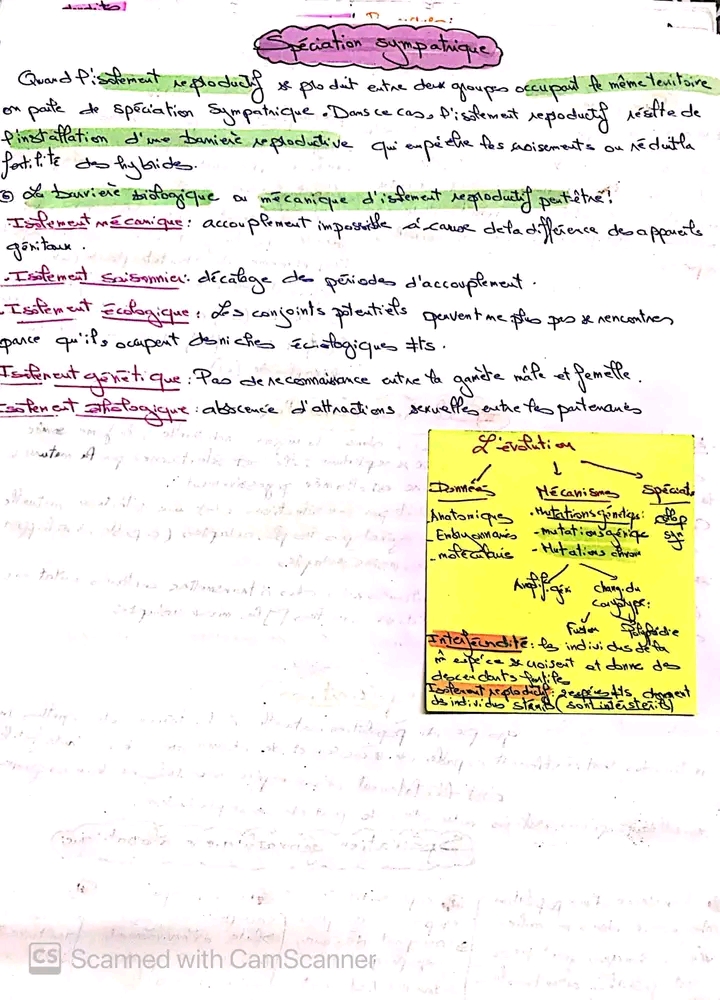 Spéciation sympatrique
Quand l'isolement reproductif se produit entre deux groupes occupant le même territoire
on parle de spéciation sympatrique. Dans ce cas, l'isolement reproductif résulte de
l'installation d'une barrière reproductive qui empêche les croisements ou réduit la
fertilité des hybrides.
La barrière biologique ou mécanique d'isolement reproductif peut être:
.Isolement mécanique: accouplement impossible à cause de la différence des appareils
génitaux.
.Isolement saisonnier: décalage des périodes d'accouplement.
.Isolement écologique: Les conjoints potentiels peuvent ne plus pas se rencontrer
parce qu'ils occupent des niches écologiques #ts.
Isolement génétique: Pas de reconnaissance entre la gamète mâle et femelle.
Isolement éthologique: abscence d'attractions sexuelles entre les partenaires
L'évolution
Données Mécanismes Spéciat
Anatomique .Mutations génétiq: allop
_ Embryonnaires - mutations génique sym
_ moléculaire - Mutations chrom
Amplif gén chang.du
caryotype:
Fusion Polyploïdie
Interfécondité: les individus de la
m̂ espèce se croisent et donne des
descendants fertiles
Isolement reproductif: 2 espèces #ts donnent
ds individus stériles (sont interstériles)
CS Scanned with CamScanner